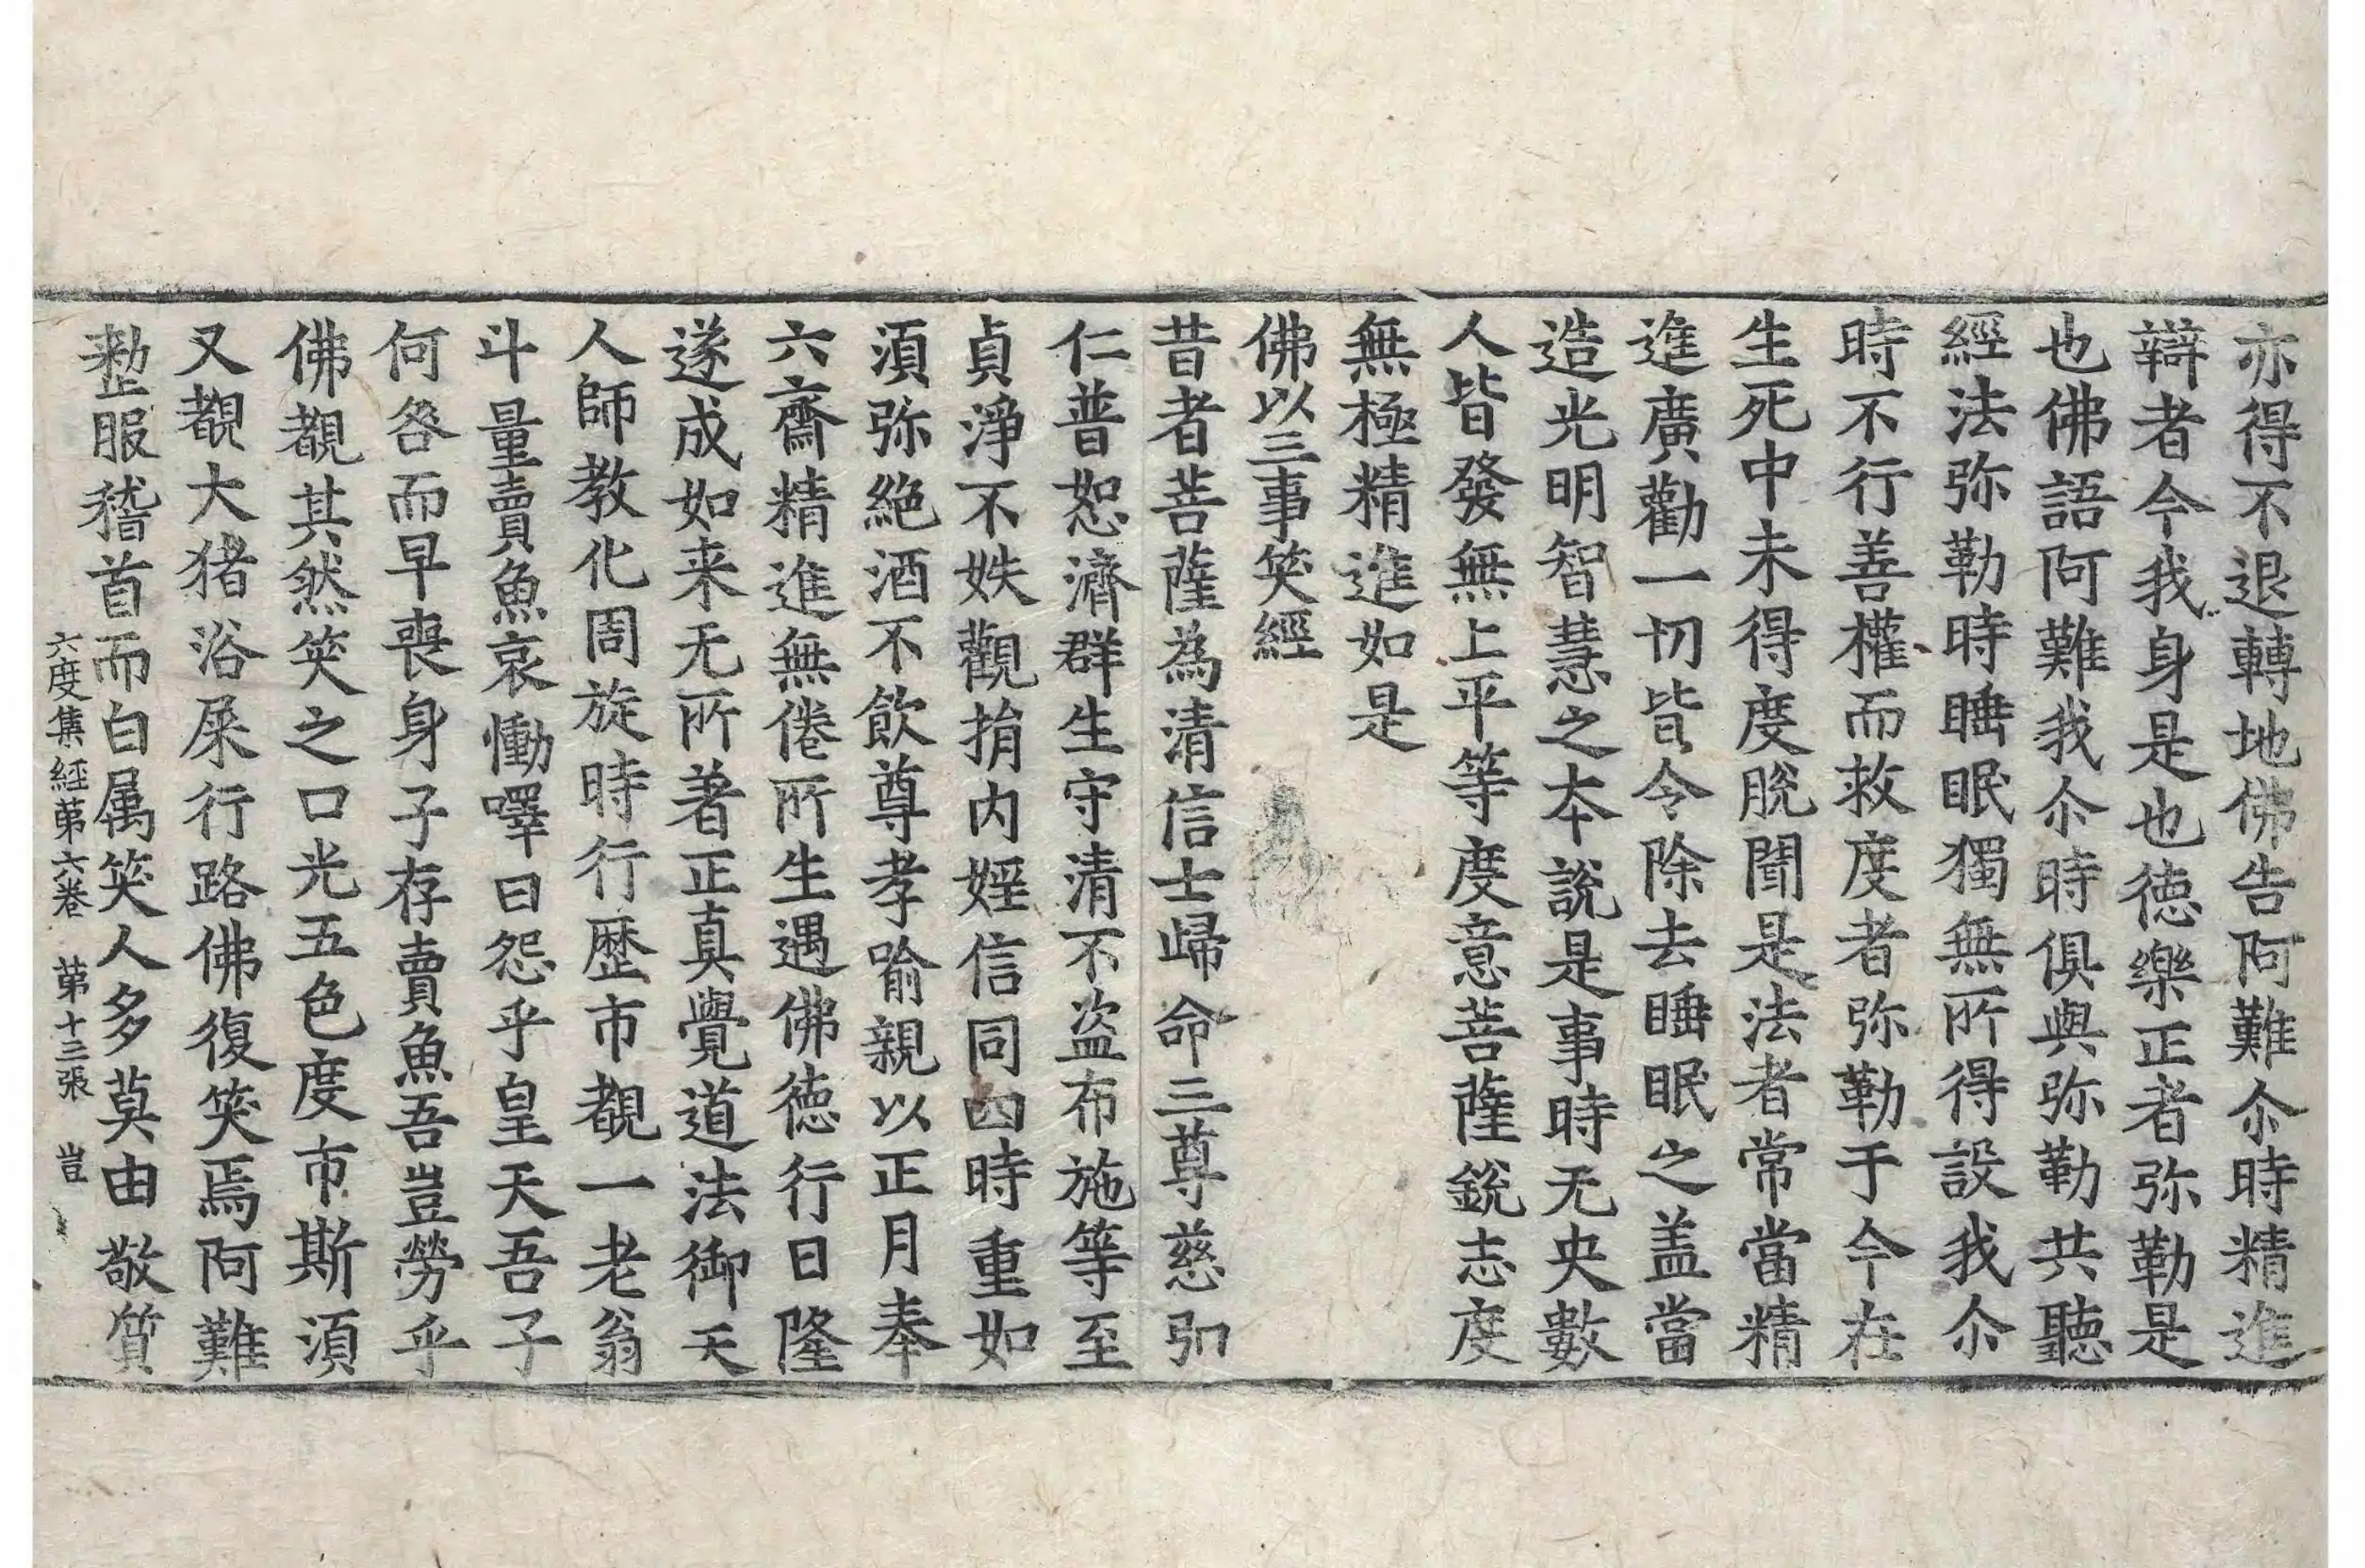 亦得不退轉地佛告阿難尒時精進
辯者今我身是也德樂正者弥勒是
也佛語阿難我尒時俱與弥勒共聽
經法弥勒時睡眠獨無所得設我尒
時不行善權而救度者弥勒于今在
生死中未得度脫聞是法者常當精
進廣勸一切皆令除去睡眠之盖當
造光明智慧之本說是事時无央數
人皆發無上平等度意菩薩銳志度
無極精進如是
佛以三事笑經
昔者菩薩為清信士歸命三尊慈弘
仁普恕濟群生守清不盜布施等至
貞淨不妷觀捐内婬信同四時重如
湏弥絶酒不飲尊孝喻親以正月奉
六齋精進無倦所生遇佛德行日隆
遂成如来无所著正真覺道法御天
人師教化周旋時行歷市覩一老翁
斗量賣魚哀慟嘊曰怨乎皇天吾子
何咎而早喪身子存賣魚吾豈勞乎
佛覩其然笑之口光五色度市斯湏
又覩大猪浴屎行路佛復笑焉阿難
整服稽首而白属笑人多莫由敬質
六度集經第六卷 第十三張 豈